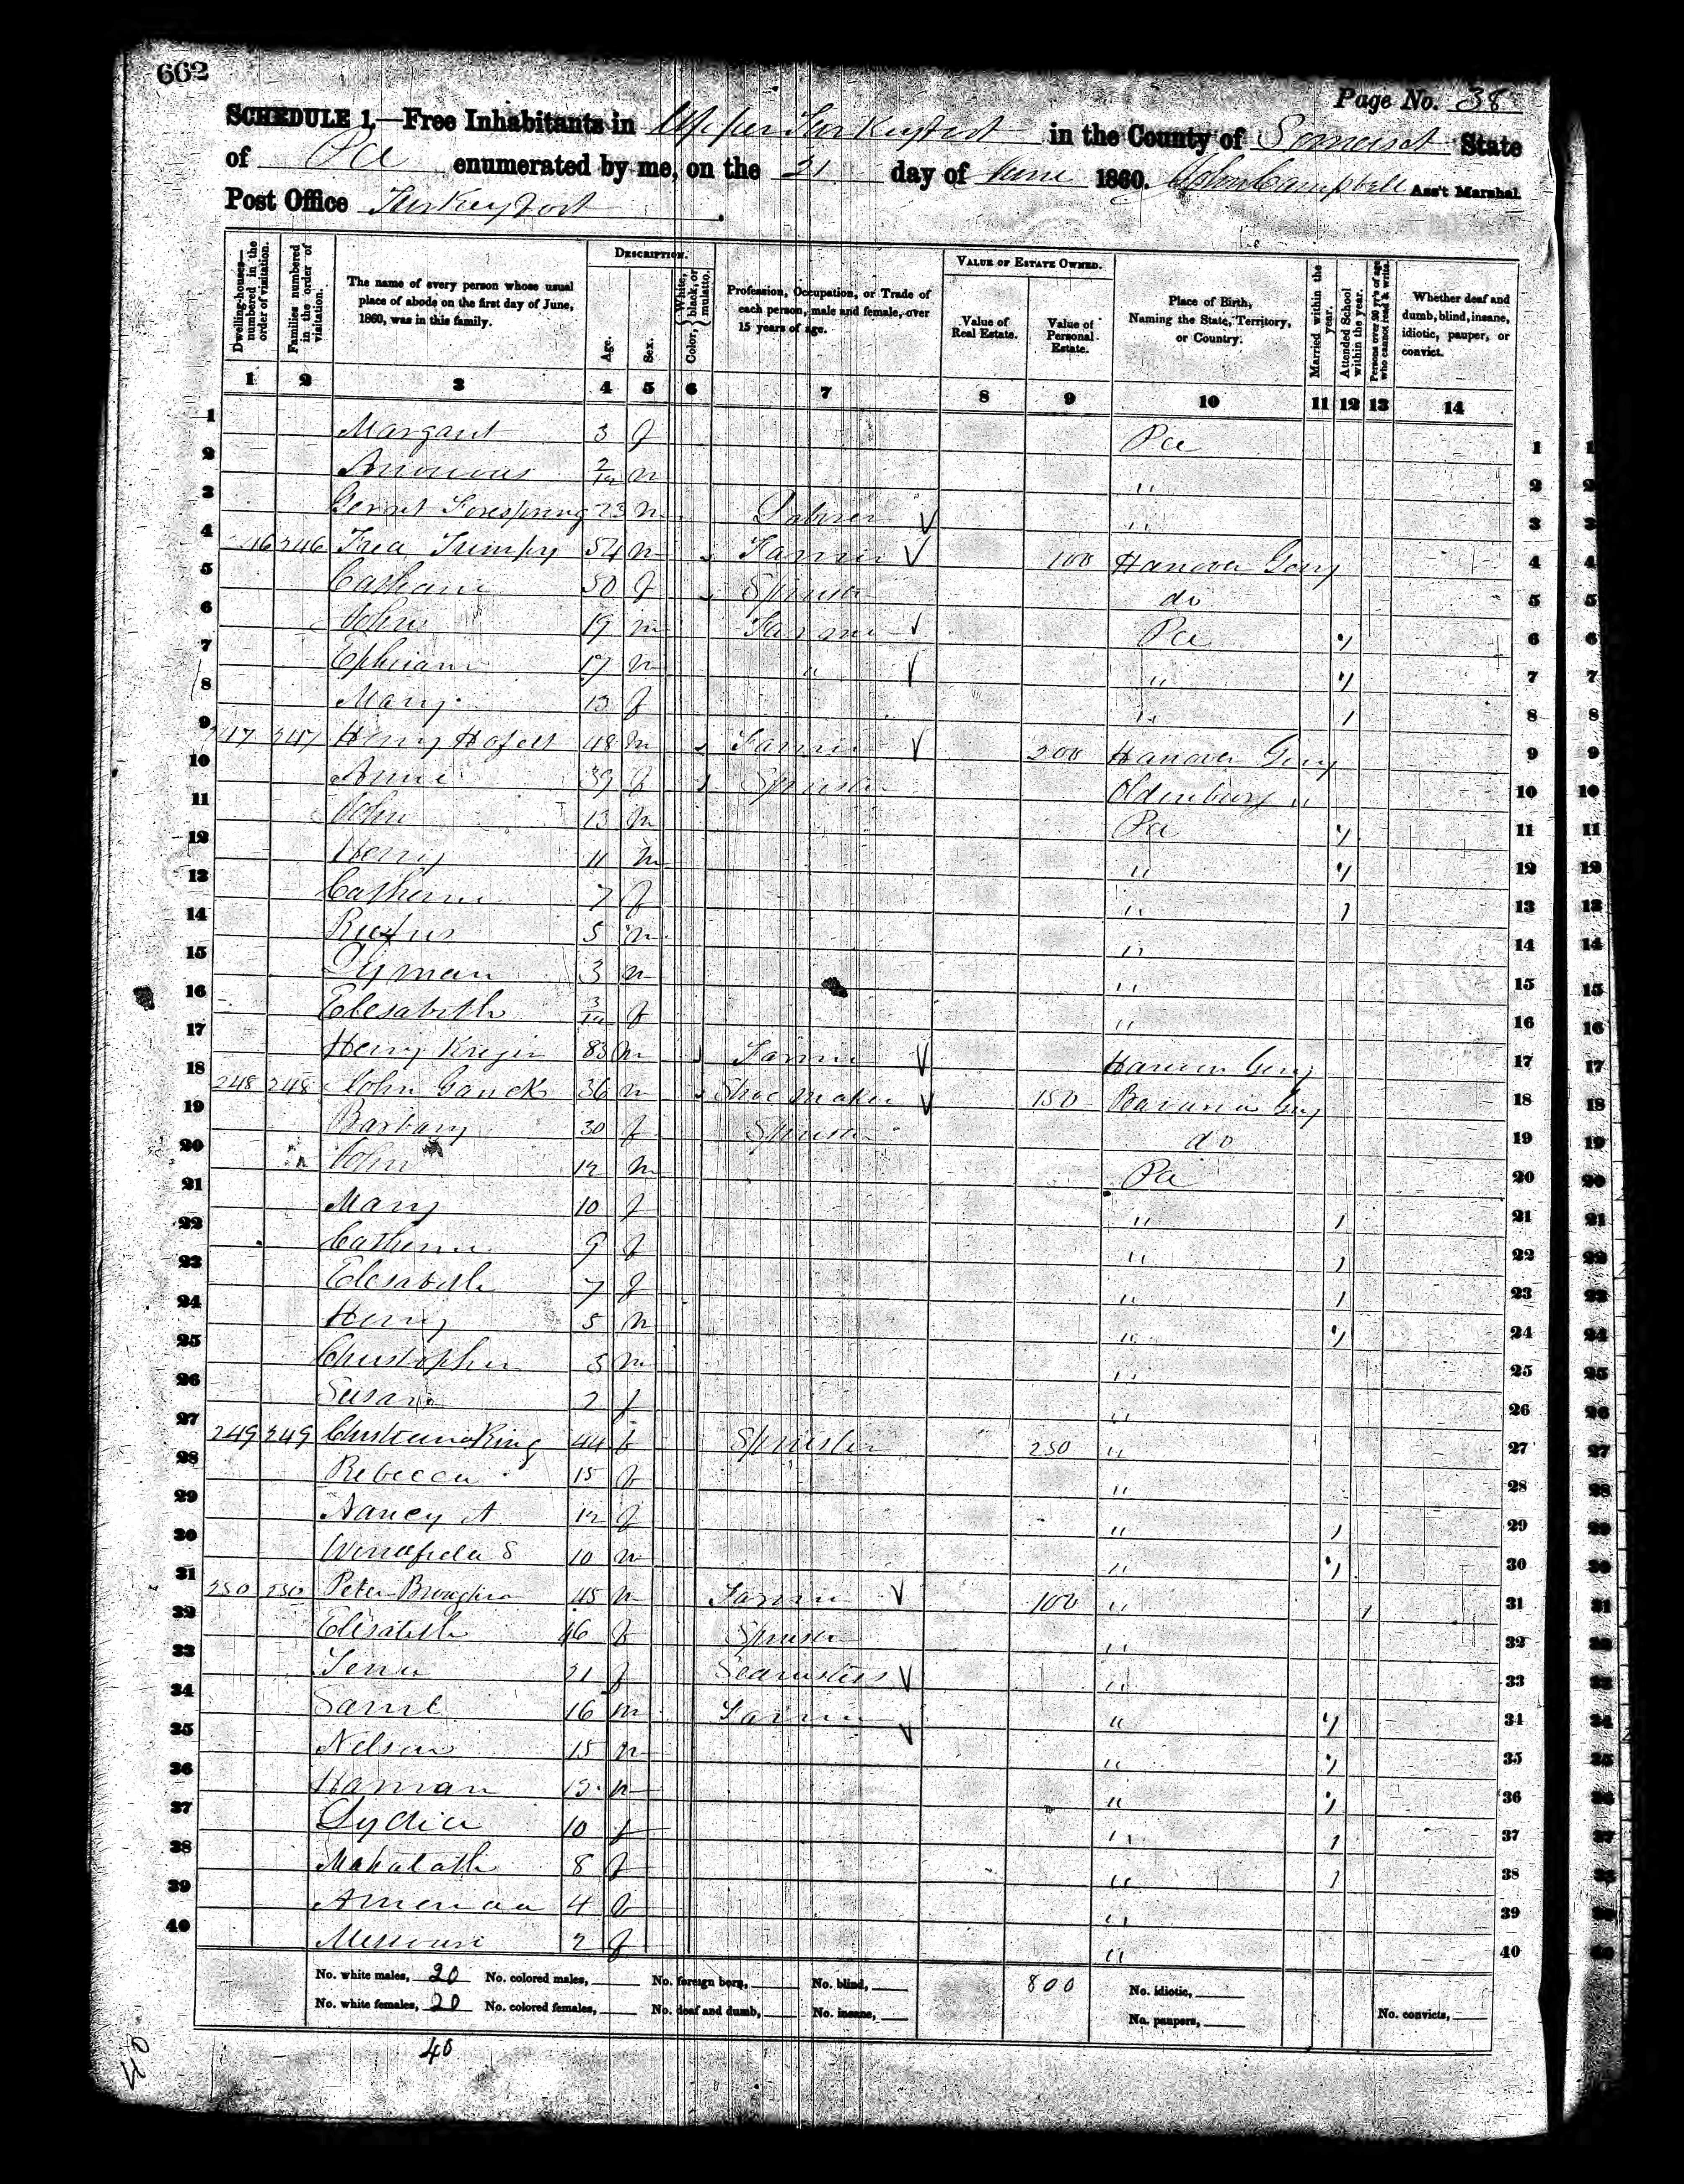 662
Page No. 38
SCHEDULE 1.—Free Inhabitants in Upper Turkeyfoot in the County of Somerset State
of Pa enumerated by me, on the 21 day of June 1860. John Campbell Ass't Marshal.
Post Office Turkeyfoot.
Dwelling-houses—numbered in the order of visitation. Families numbered in the order of visitation. The name of every person whose usual place of abode on the first day of June, 1860, was in this family. DESCRIPTION. Age. Sex. Color, {White, black, or mulatto. Profession, Occupation, or Trade of each person, male and female, over 15 years of age. VALUE OF ESTATE OWNED. Value of Real Estate. Value of Personal Estate. Place of Birth, Naming the State, Territory, or Country. Married within the year. Attended School within the year. Persons over 20 y'rs of age who cannot read & write. Whether deaf and dumb, blind, insane, idiotic, pauper, or convict.
1 2 3 4 5 6 7 8 9 10 11 12 13 14
1 Margaret 3 f Pa 1
2 2/12 m " 2
3 23 m Laborer " 3
4 246 54 m Farmer 100 Hanover Gery 4
5 50 f Spinster do 5
6 John 19 m Farmer Pa 6
7 Ephriam 17 m " " 7
8 Mary 13 f " 8
9 247 247 Henry 48 m Farmer 200 Hanover Gery 9
10 Anne 39 f Spinster Oldenburg " 10
11 John 13 m Pa 11
12 Henry 11 m " 12
13 Catherine 7 f " 13
14 Rufus 5 m " 14
15 Lyman 3 m " 15
16 Elesabeth 3/12 f " 16
17 Henry 83 m Farmer Hanover Gery 17
18 248 248 John 36 m Shoe Maker 150 Bavaria Gery 18
19 Barbary 30 f Spinster do 19
20 John 12 m Pa 20
21 Mary 10 f " 21
22 Catherine 9 f " 22
23 Elesabeth 7 f " 23
24 Henry 5 m " 24
25 Christopher 3 m " 25
26 Susan 2 f " 26
27 249 249 Christiana King 44 f Spinster 250 " 27
28 Rebecca 15 f " 28
29 Nancy A 12 f " 29
30 Winfield S 10 m " 30
31 250 250 Peter 45 m Farmer 100 " 31
32 Elisabeth 46 f Spinster " 32
33 21 f Seamstess " 33
34 Saml 16 m Farmer " 34
35 Nelson 15 m " 35
36 Harman 12 m " 36
37 Lydia 10 f " 37
38 Mahalath 8 f " 38
39 America 4 f " 39
40 Missouri 2 f " 40
No. white males, 20 No. colored males, No. foreign born, No. blind, 800 No. idiotic,
No. white females, 20 No. colored females, No. deaf and dumb, No. insane, No. paupers, No. convicts,
40
40